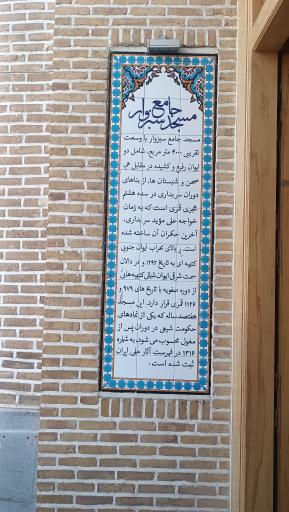 مسجد جامع سبزوار
مسجد جامع سبزوار با وسعت
تقریبی ۴۰۰۰ متر مربع، شامل دو
ایوان رفیع و کشیده در مقابل هم،
صحن و شبستان ها، از بناهای
دوران سربداری در سده هشتم
هجری قمری است که به زمان
خواجه علی مؤید سربداری،
آخرین حکمران آن ساخته شده
است. بر بالای محراب ایوان جنوبی
کتیبه ای به تاریخ ۱۲۹۲ و در دالان
صحن شرقی ایوان شمالی کتیبه هایی
از دوره صفویه با تاریخ های ۹۷۹ و
۱۱۲۶ قمری قرار دارد. این مسجد
هفتصد ساله که یکی از نمادهای
حکومت شیعی در دوران پس از
مغول محسوب می شود، به شماره
۱۳۱۶ در فهرست آثار ملی ایران
ثبت شده است.